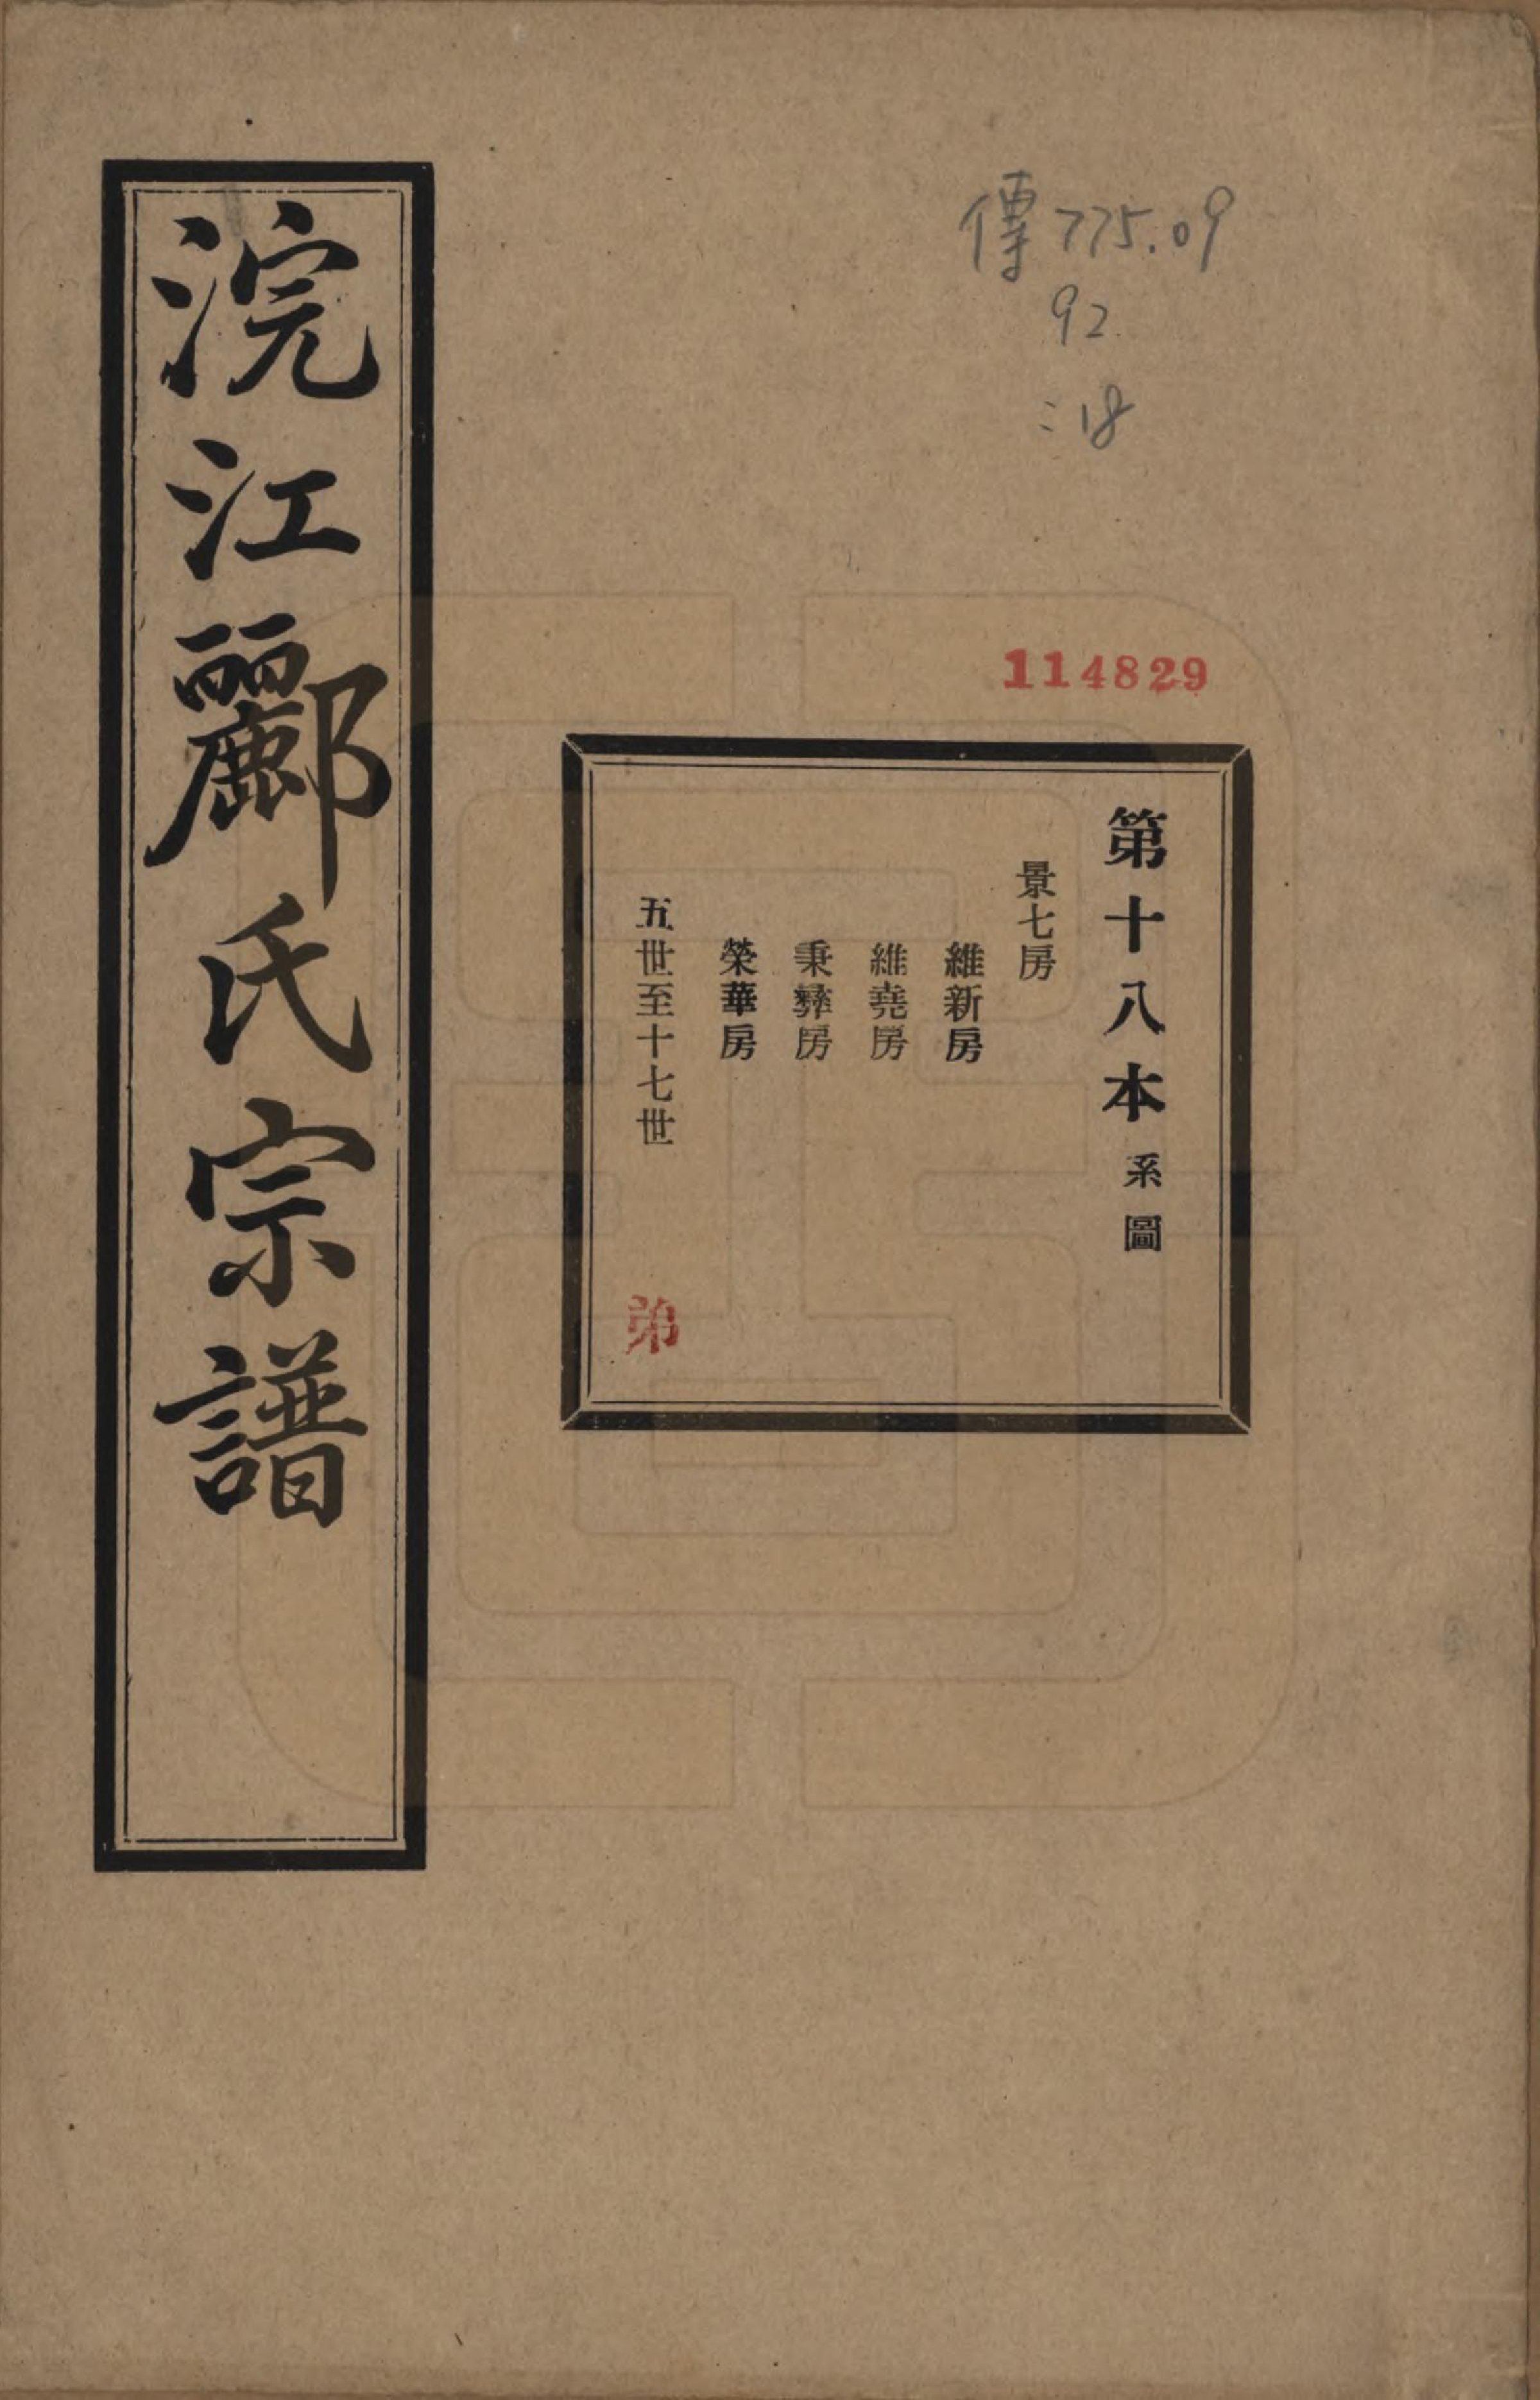 傳775.09
92
:18
114829
第十八本 系圖
景七房
維新房
維堯房
秉彝房
榮華房
五世至十七世
弟
浣江酈氏宗譜